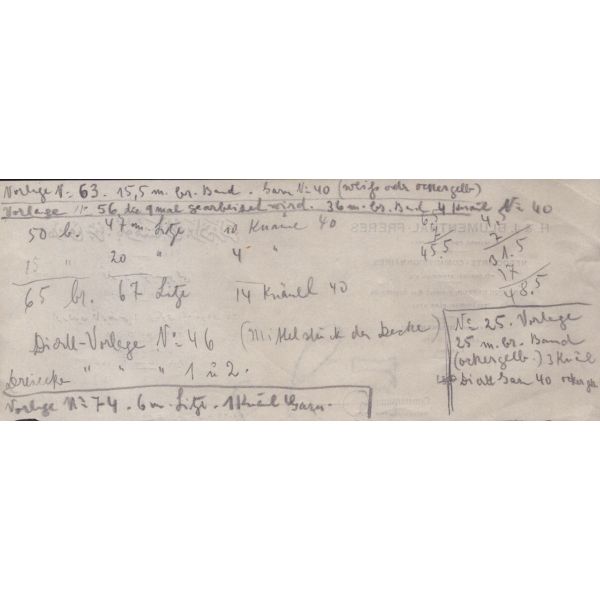 Vorlage No 63. 15,5 m. br. Band. Garn No 40 (weiss oder ockergelb)
Vorlage No 56, die 9 mal gearbeitet wird. 36 m. br. Band 4 Knäul No 40
50 b. 47 m. Litze 10 Knäuel 40
15 " 20 " 4 "
65 br. 67 Litze 14 Knäuel 40
45.5
31.5
17
48.5
Vorlage No 46 (Mittelstück der Decke)
Dreiecke " " " 1 u 2.
Vorlage No 74. 6 m. Litze. 1 Knäul Garn.
No 25. Vorlage
25 m. br. Band
(ockergelb) 3 Knäl
Garn 40
H. & J. BLUMENTHAL FRERES